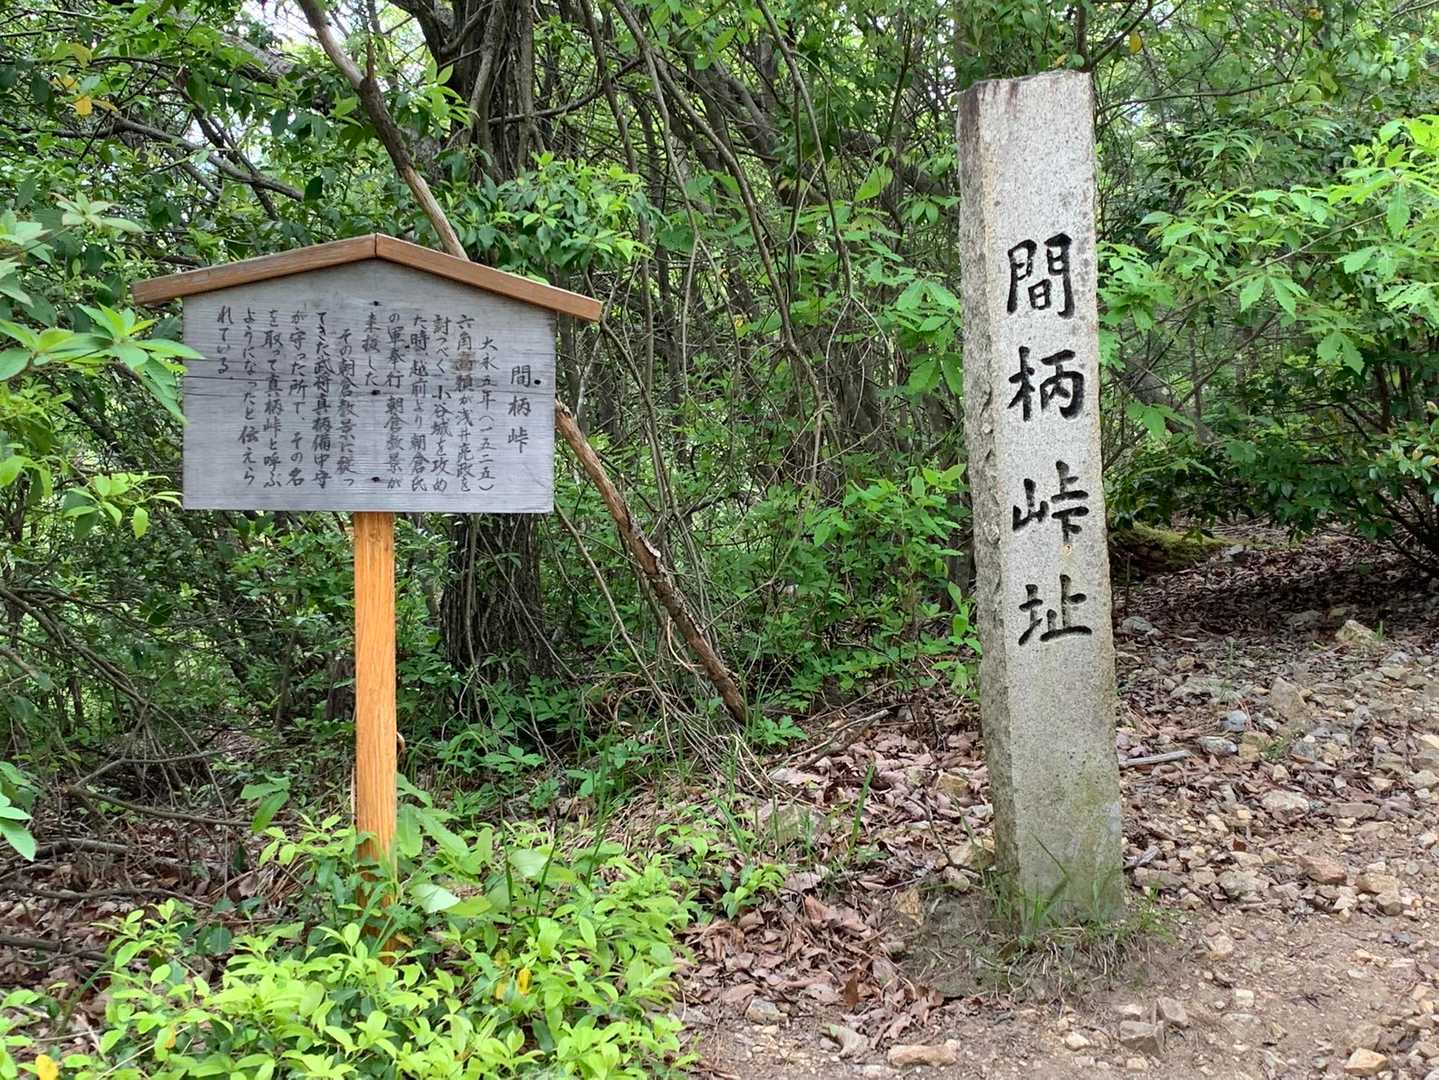 間柄峠
大永五年(一五二五)
六角高頼が浅井亮政を
討つべく小谷城を攻め
た時、越前より朝倉氏
の軍奉行 朝倉教景が
来援した。
その朝倉教景に従っ
てきた武将真柄備中守
が守った所で、その名
を取って真柄峠と呼ぶ
ようになったと伝えら
れている。
間柄峠址